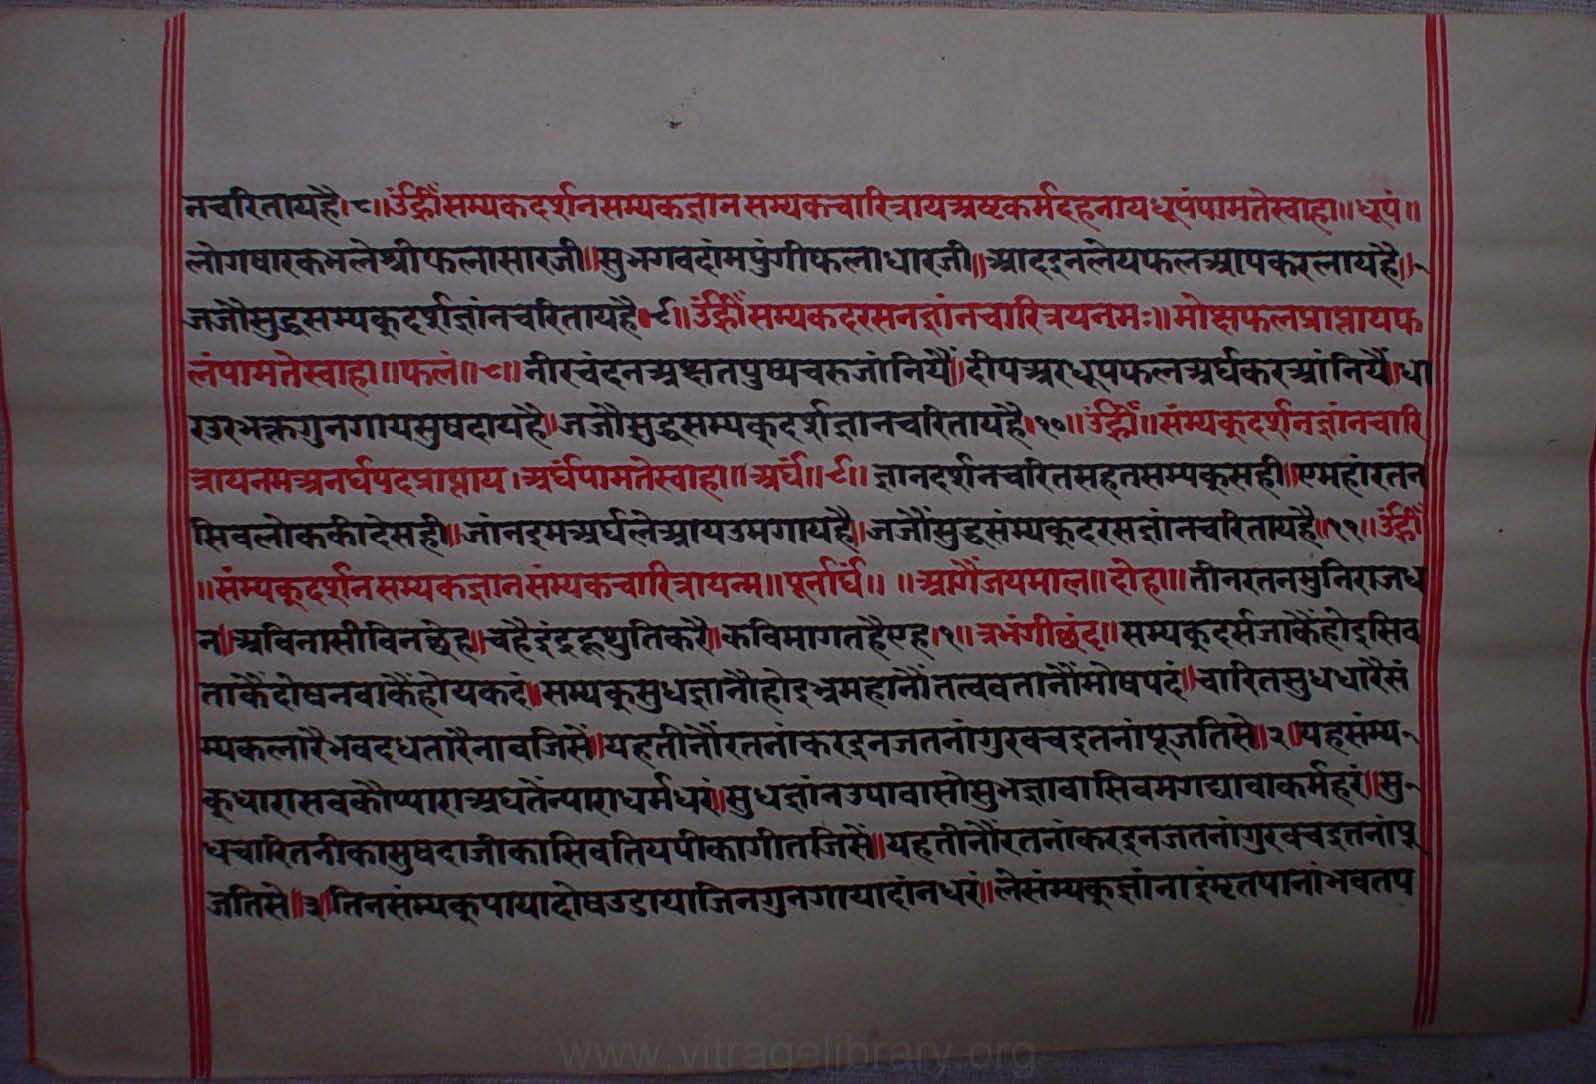 नचरितायहै।८॥उंह्रीँसम्यकदर्शनसम्यकज्ञानसम्यकचारित्रायअष्टकर्मदहनायधूपंपामतेस्वाहा॥धूपं॥
लोगषारकभलेश्रीफलासारजी॥सुभगवदांमपुंगीफलाधारजी॥आददनलेयफलआपकरलायहै॥
जजौसुद्धसम्यकूदर्शज्ञांनचरितायहै।९॥उंह्रीँसम्यकदरसनज्ञांनचारित्रयनमः॥मोक्षफलप्राप्तायफ
लंपामतेस्वाहा॥फलं॥९॥नीरचंदनअक्षतपुष्पचरुजांनियैं॥दीपअरधूपफलअर्घकरआंनियैं॥धा
रउरभक्तगुनगायसुषदायहै॥जजौसुद्धसम्यकूदर्शज्ञानचरितायहै।१०॥उंह्रीँ॥संम्यकूदर्शनज्ञांनचारि
त्रायनमअनर्घपदप्राप्ताय।अर्घंपामतेस्वाहा॥अर्घं॥९॥ज्ञानदर्शनचरितसहतसम्यकूसही॥एमहांरतन
सिवलोककीदेसही॥जांनइमअर्घलेआयउमगायहै॥जजौंसुद्धसंम्यकूदरसज्ञांनचरितायहै॥११॥उंह्रीँ
॥संम्यकूदर्शनसम्यकज्ञानसंम्यकचारित्रायन्म॥पूर्नार्घं॥॥आगैंजयमाल॥दोहा॥तीनरतनमुनिराजध
न॥अविनासीविनछेह॥चहैइंद्रहूथुतिकरै॥कविमागतहैएह।१॥त्रभंगीछंद॥सम्यकूदर्सजाकैंहोइसिव
ताकैंदोषनवाकैंहोयकदं॥सम्यकूसुधज्ञानौहोइभ्रमहानौंतत्ववतानौंमोषपदं॥चारितसुधधारैसं
म्यकलारैभवदधतारैनावजिसैं॥यहतीनौंरतनांकरइनजतनांगुरवचइतनांपूजतिसे॥२॥यहसंम्य
कूधारासवकौप्याराअघतैंन्याराधर्मधरं॥सुधज्ञांनउपावासोसुभज्ञावासिवमगद्यावाकर्महरं॥सु
धचारितनीकासुषदाजीकासिवतियपीकागीतजिसैं॥यहतीनौंरतनांकरइनजतनांगुरवचइतनांपू
जतिसे॥३॥तिनसंम्यकूपायादोषउडायाजिनगुनगायादांनधरं॥लेसंम्यकूज्ञांनाइंमृतपानांभवतप
www.vitragelibrary.org